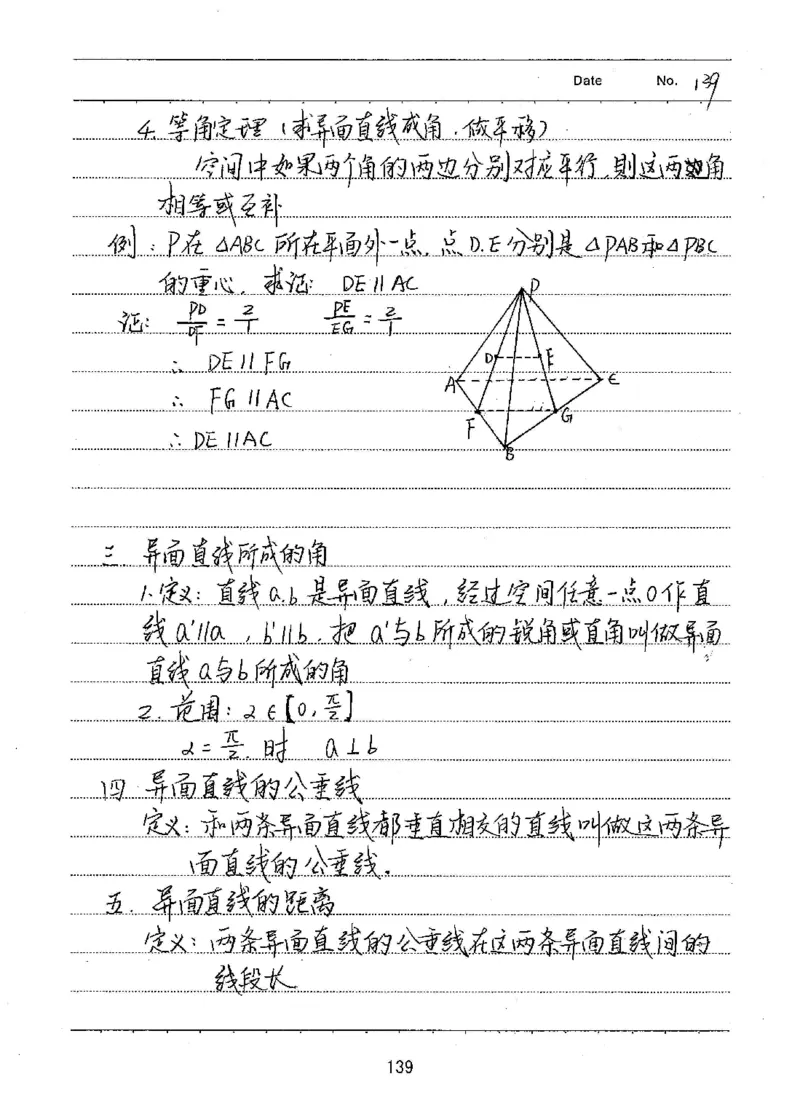 Date No. 139
4. 等角定理(求异面直线成角.做平移)
空间中如果两个角的两边分别对应平行,则这两角
相等或互补
例:P在△ABC所在平面外一点,点D.E分别是△PAB和△PBC
的重心.求证: DE∥AC
证: PD/DF = 2/1 PE/EG = 2/1
∴ DE∥FG
∵ FG∥AC
∴ DE∥AC
P
D E
A C
F G
B
三. 异面直线所成的角
1.定义:直线a.b是异面直线,经过空间任意一点O作直
线a'∥a,b'∥b.把a'与b所成的锐角或直角叫做异面
直线a与b所成的角
2.范围:α∈[0,π/2]
α=π/2.时 a⊥b
四 异面直线的公垂线
定义:和两条异面直线都垂直相交的直线叫做这两条异
面直线的公垂线.
五. 异面直线的距离
定义:两条异面直线的公垂线在这两条异面直线间的
线段长
139